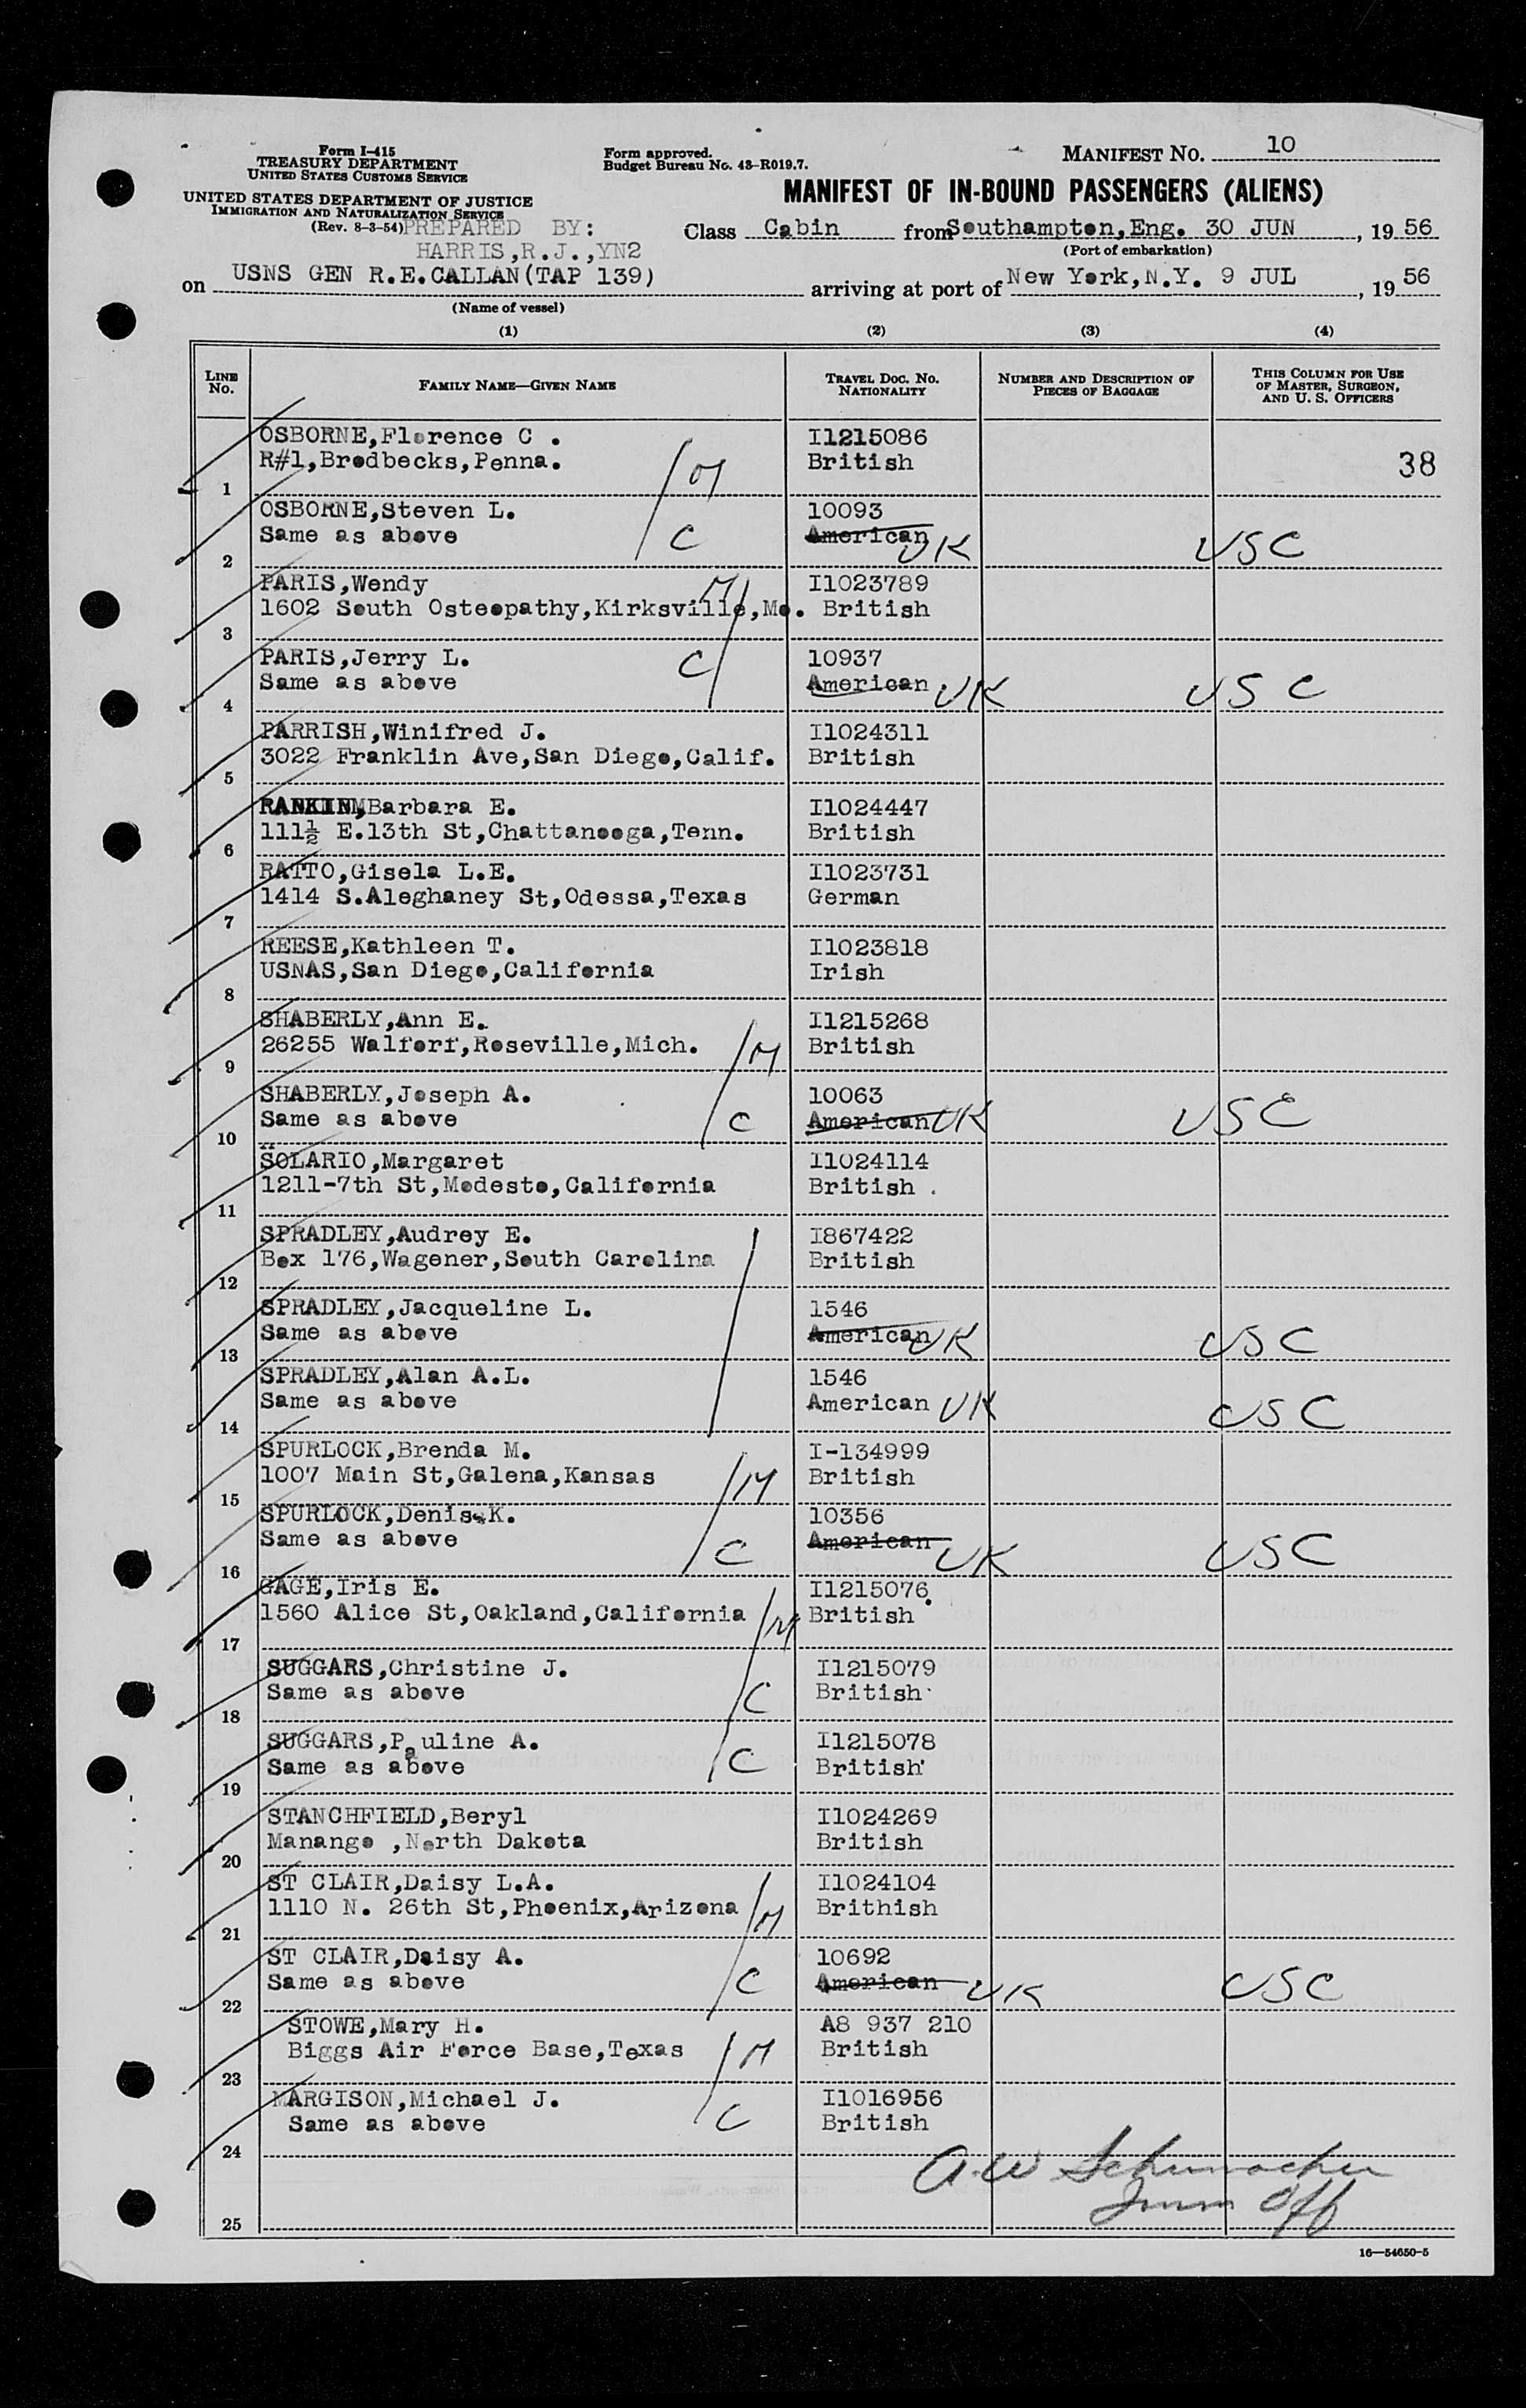 Form I-415
TREASURY DEPARTMENT
UNITED STATES CUSTOMS SERVICE
UNITED STATES DEPARTMENT OF JUSTICE
IMMIGRATION AND NATURALIZATION SERVICE
(Rev. 8-3-54) PREPARED BY:
HARRIS,R.J.,YN2
Form approved.
Budget Bureau No. 43-R019.7.
MANIFEST NO. 10
MANIFEST OF IN-BOUND PASSENGERS (ALIENS)
Class Cabin from Southampton,Eng. 30 JUN, 19 56
(Port of embarkation)
on USNS GEN R.E.CALLAN(TAP 139) arriving at port of New York,N.Y. 9 JUL, 19 56
(Name of vessel)
(1) (2) (3) (4)
LINE No. FAMILY NAME—GIVEN NAME TRAVEL DOC. NO. NATIONALITY NUMBER AND DESCRIPTION OF PIECES OF BAGGAGE THIS COLUMN FOR USE OF MASTER, SURGEON, AND U. S. OFFICERS
OSBORNE,Florence C . I1215086
R#1,Brodbecks,Penna. M British 38
1
OSBORNE,Steven L. 10093
Same as above C American UK USC
2
PARIS,Wendy M I1023789
1602 South Osteopathy,Kirksville,Mo. British
3
PARIS,Jerry L. C 10937
Same as above American UK USC
4
PARRISH,Winifred J. I1024311
3022 Franklin Ave,San Diego,Calif. British
5
RANKIN,Barbara E. I1024447
111½ E.13th St,Chattanooga,Tenn. British
6
RATTO,Gisela L.E. I1023731
1414 S.Aleghaney St,Odessa,Texas German
7
REESE,Kathleen T. I1023818
USNAS,San Diego,California Irish
8
SHABERLY,Ann E. I1215268
26255 Walforf,Roseville,Mich. M British
9
SHABERLY,Joseph A. 10063
Same as above C American UK USC
10
SOLARIO,Margaret I1024114
1211-7th St,Modesto,California British .
11
SPRADLEY,Audrey E. I867422
Box 176,Wagener,South Carolina British
12
SPRADLEY,Jacqueline L. 1546
Same as above American UK USC
13
SPRADLEY,Alan A.L. 1546
Same as above American UK USC
14
SPURLOCK,Brenda M. I-134999
1007 Main St,Galena,Kansas M British
15
SPURLOCK,Denis K. 10356
Same as above C American UK USC
16
GAGE,Iris E. I1215076
1560 Alice St,Oakland,California M British
17
SUGGARS,Christine J. I1215079
Same as above C British
18
SUGGARS,Pauline A. I1215078
Same as above C British
19
STANCHFIELD,Beryl I1024269
Manango ,North Dakota British
20
ST CLAIR,Daisy L.A. I1024104
1110 N. 26th St,Phoenix,Arizona M Brithish
21
ST CLAIR,Daisy A. 10692
Same as above C American UK USC
22
STOWE,Mary H. A8 937 210
Biggs Air Force Base,Texas M British
23
MARGISON,Michael J. I1016956
Same as above C British
24
A.W Schumacher
Imm Off
25
16—54650-5